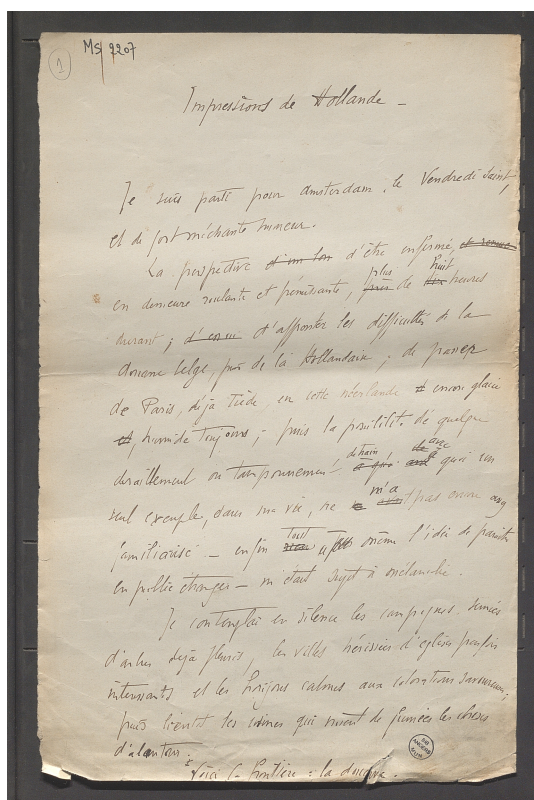 1
MS 2207
Impressions de Hollande -
Je suis parti pour amsterdam, le Vendredi Saint,
et de fort méchante humeur.
La perspective d'être enfermé,
en demeure roulante et frémissante, plus de huit heures
durant ; d'affronter les difficultés de la
douane belge, puis de la Hollandaise ; de passer
de Paris, déjà tiède, en cette néerlande encore glacée
et, humide toujours ; puis la possibilité de quelque
déraillement ou tamponnement de train avec quoi un
seul exemple, dans ma vie, ne m'a pas encore
familiarisé - enfin tout même l'idée de paraître
en public étranger - m'était sujet à mélancolie.
Je contemplai en silence les campagnes semées
d'arbres déjà fleuris, les villes hérissées d'églises parfois
intéressants et les horizons calmes aux colorations savoureuses,
puis bientôt les usines qui de fumées les choses
d'alentour.
Voici la frontière : la douane.